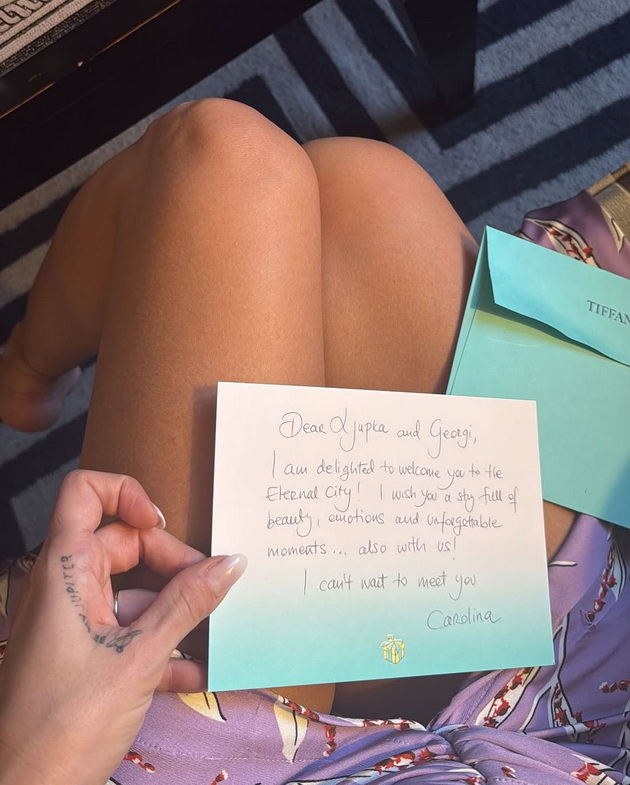 Dear Ljupka and Georgi,
I am delighted to welcome you to the
Eternal City! I wish you a sty full of
beauty, emotions and unforgettable
moments... also with us!
I can't wait to meet you
Carolina
TIFFAN
JUPITER